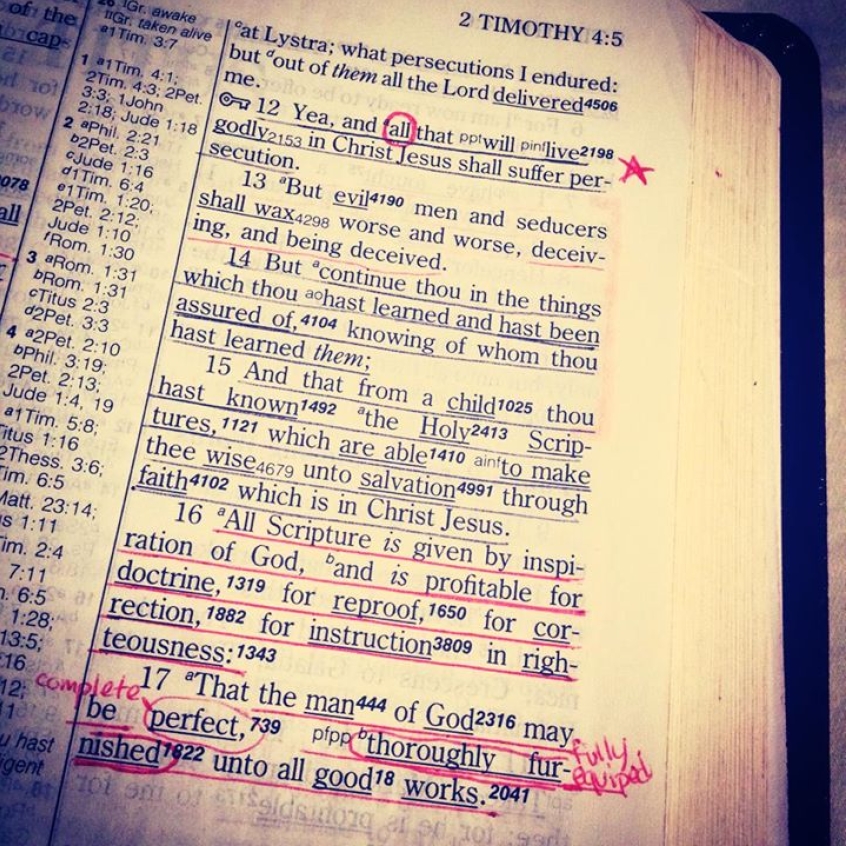 2 TIMOTHY 4:5
of the
cap-
IGr. awake
IIGr. taken alive
a1Tim. 3:7
1 a1Tim. 4:1;
2Tim. 4:3; 2Pet.
3:3; 1John
2:18; Jude 1:18
2 aPhil. 2:21
b2Pet. 2:3
cJude 1:16
d1Tim. 6:4
e1Tim. 1:20;
2Pet. 2:12;
Jude 1:10
fRom. 1:30
3 aRom. 1:31
bRom. 1:31
cTitus 2:3
d2Pet. 3:3
4 a2Pet. 2:10
bPhil. 3:19;
2Pet. 2:13;
Jude 1:4, 19
a1Tim. 5:8;
Titus 1:16
2Thess. 3:6;
Tim. 6:5
Matt. 23:14;
1:11
im. 2:4
7:11
6:5
1:28;
13:5;
:16
12;
11
u hast
igent
cat Lystra; what persecutions I endured:
but dout of them all the Lord delivered4506
me.
12 Yea, and aall that pptwill pinflive2198
godly2153 in Christ Jesus shall suffer per-
secution.
13 aBut evil4190 men and seducers
shall wax4298 worse and worse, deceiv-
ing, and being deceived.
14 But acontinue thou in the things
which thou aohast learned and hast been
assured of,4104 knowing of whom thou
hast learned them;
15 And that from a child1025 thou
hast known1492 athe Holy2413 Scrip-
tures,1121 which are able1410 ainfto make
thee wise4679 unto salvation4991 through
faith4102 which is in Christ Jesus.
16 aAll Scripture is given by inspi-
ration of God, band is profitable for
doctrine,1319 for reproof,1650 for cor-
rection,1882 for instruction3809 in righ-
teousness:1343
complete
17 aThat the man444 of God2316 may
be perfect,739 pfpp bthoroughly fur-
fully
equiped
nished1822 unto all good18 works.2041